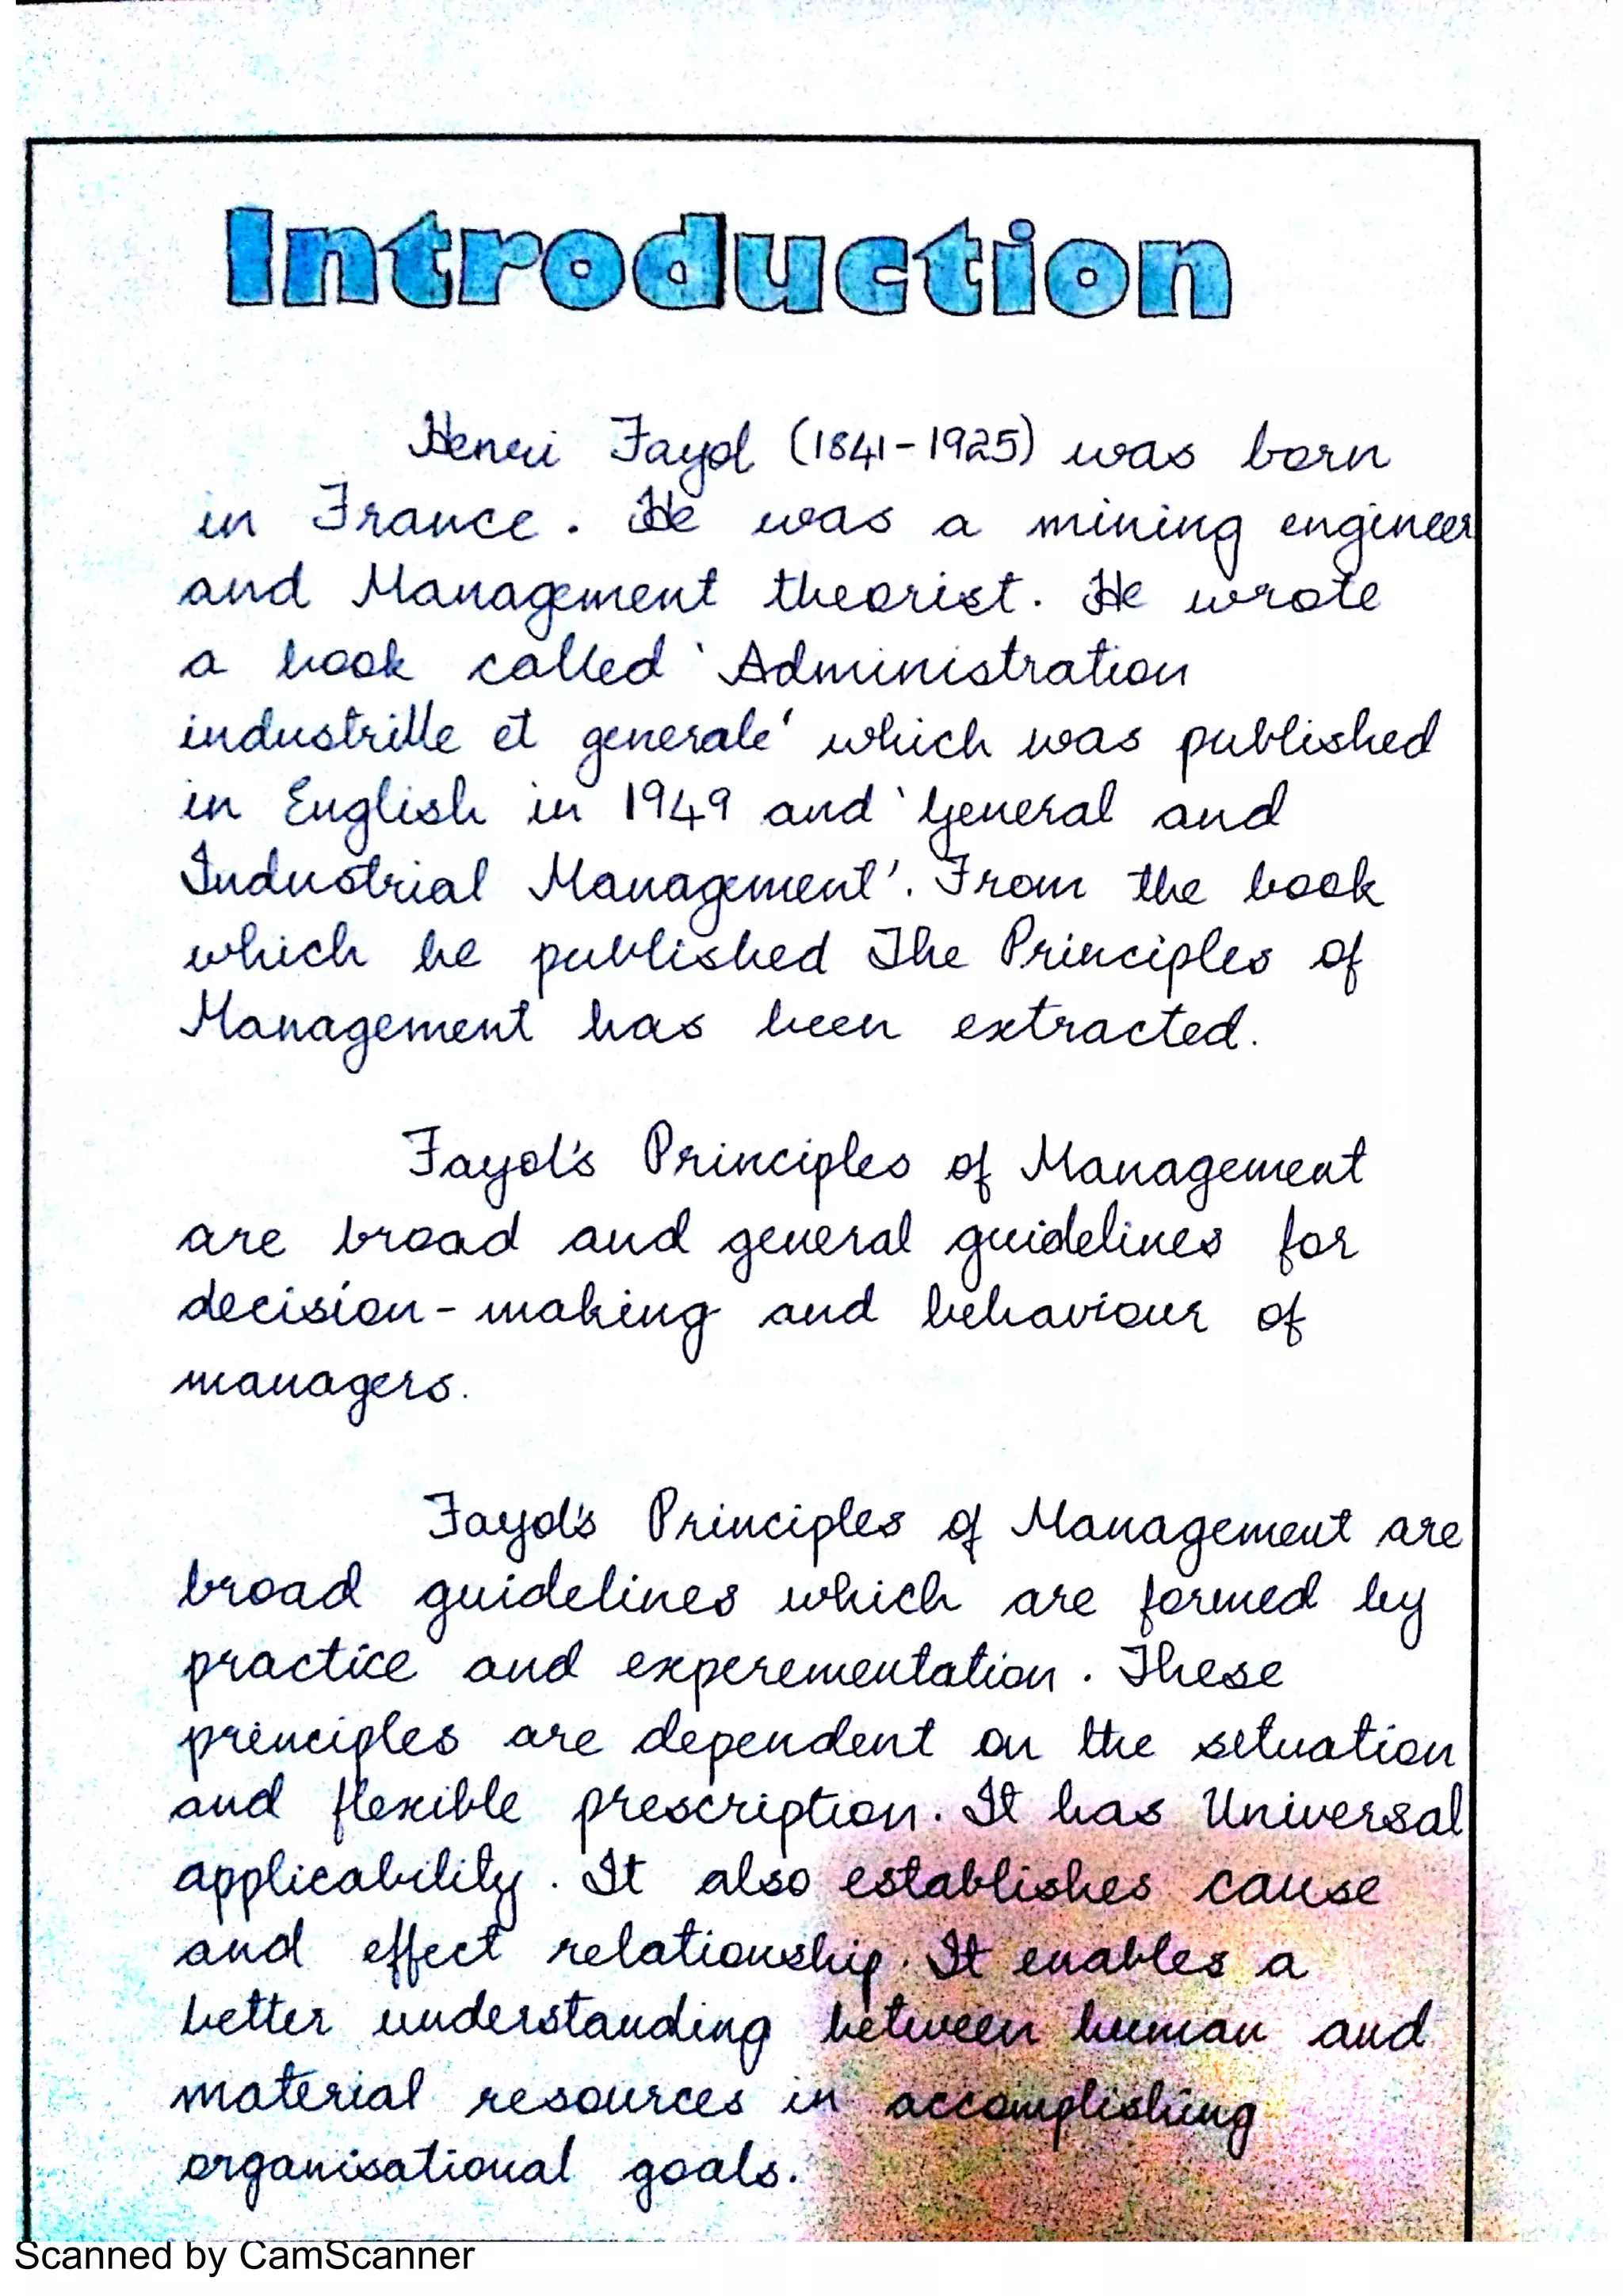 Introduction
Henri Fayol (1841-1925) was born
in France. He was a mining engineer
and Management theorist. He wrote
a book called 'Administration
industrille et generale' which was published
in English in 1949 and 'General and
Industrial Management'. From the book
which he published The Principles of
Management has been extracted.
Fayol's Principles of Management
are broad and general guidelines for
decision-making and behaviour of
managers.
Fayol's Principles of Management are
broad guidelines which are formed by
practice and experementation. These
principles are dependent on the situation
and flexible prescription. It has Universal
applicability. It also establishes cause
and effect relationship. It enables a
better understanding between human and
material resources in accomplishing
organisational goals.
Scanned by CamScanner